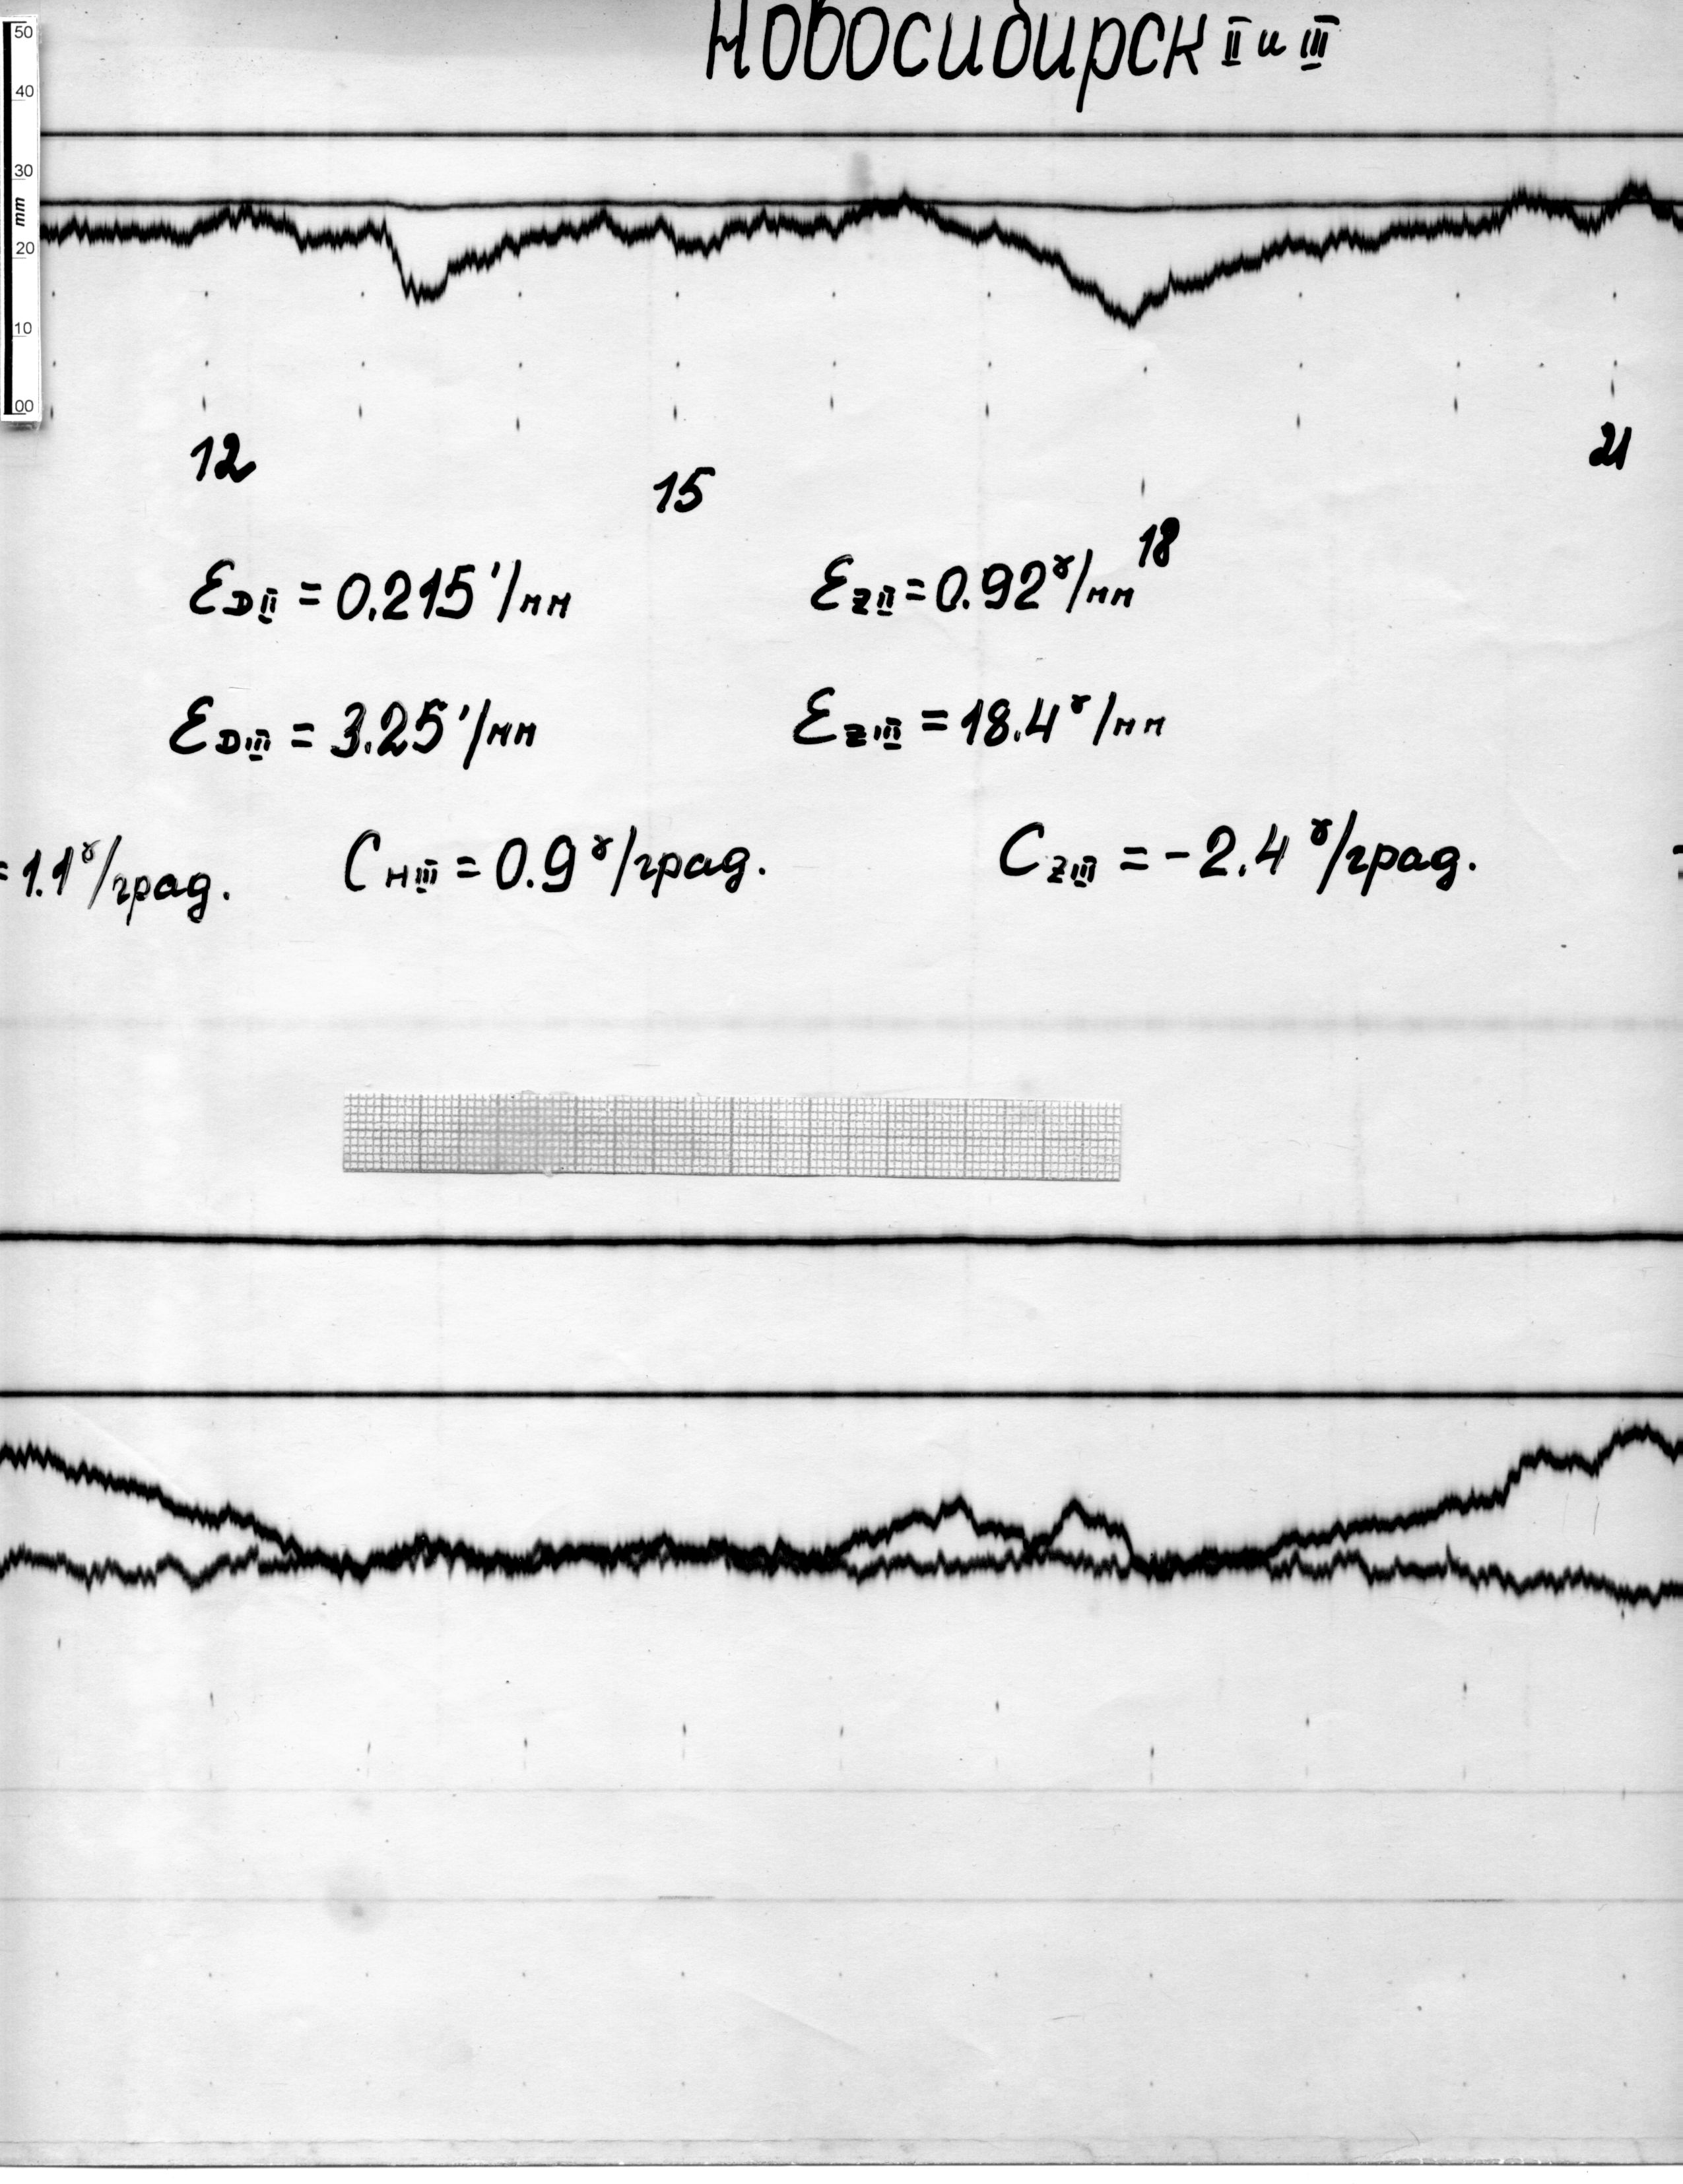 Новосибирск II и III
50
40
30
mm
20
10
00
12
15
18
21
ƐDII = 0.215'/мм
ƐZII = 0.92γ/мм
ƐDIII = 3.25'/мм
ƐZIII = 18.4γ/мм
= 1.1γ/град.
CHIII = 0.9γ/град.
CZIII = -2.4γ/град.